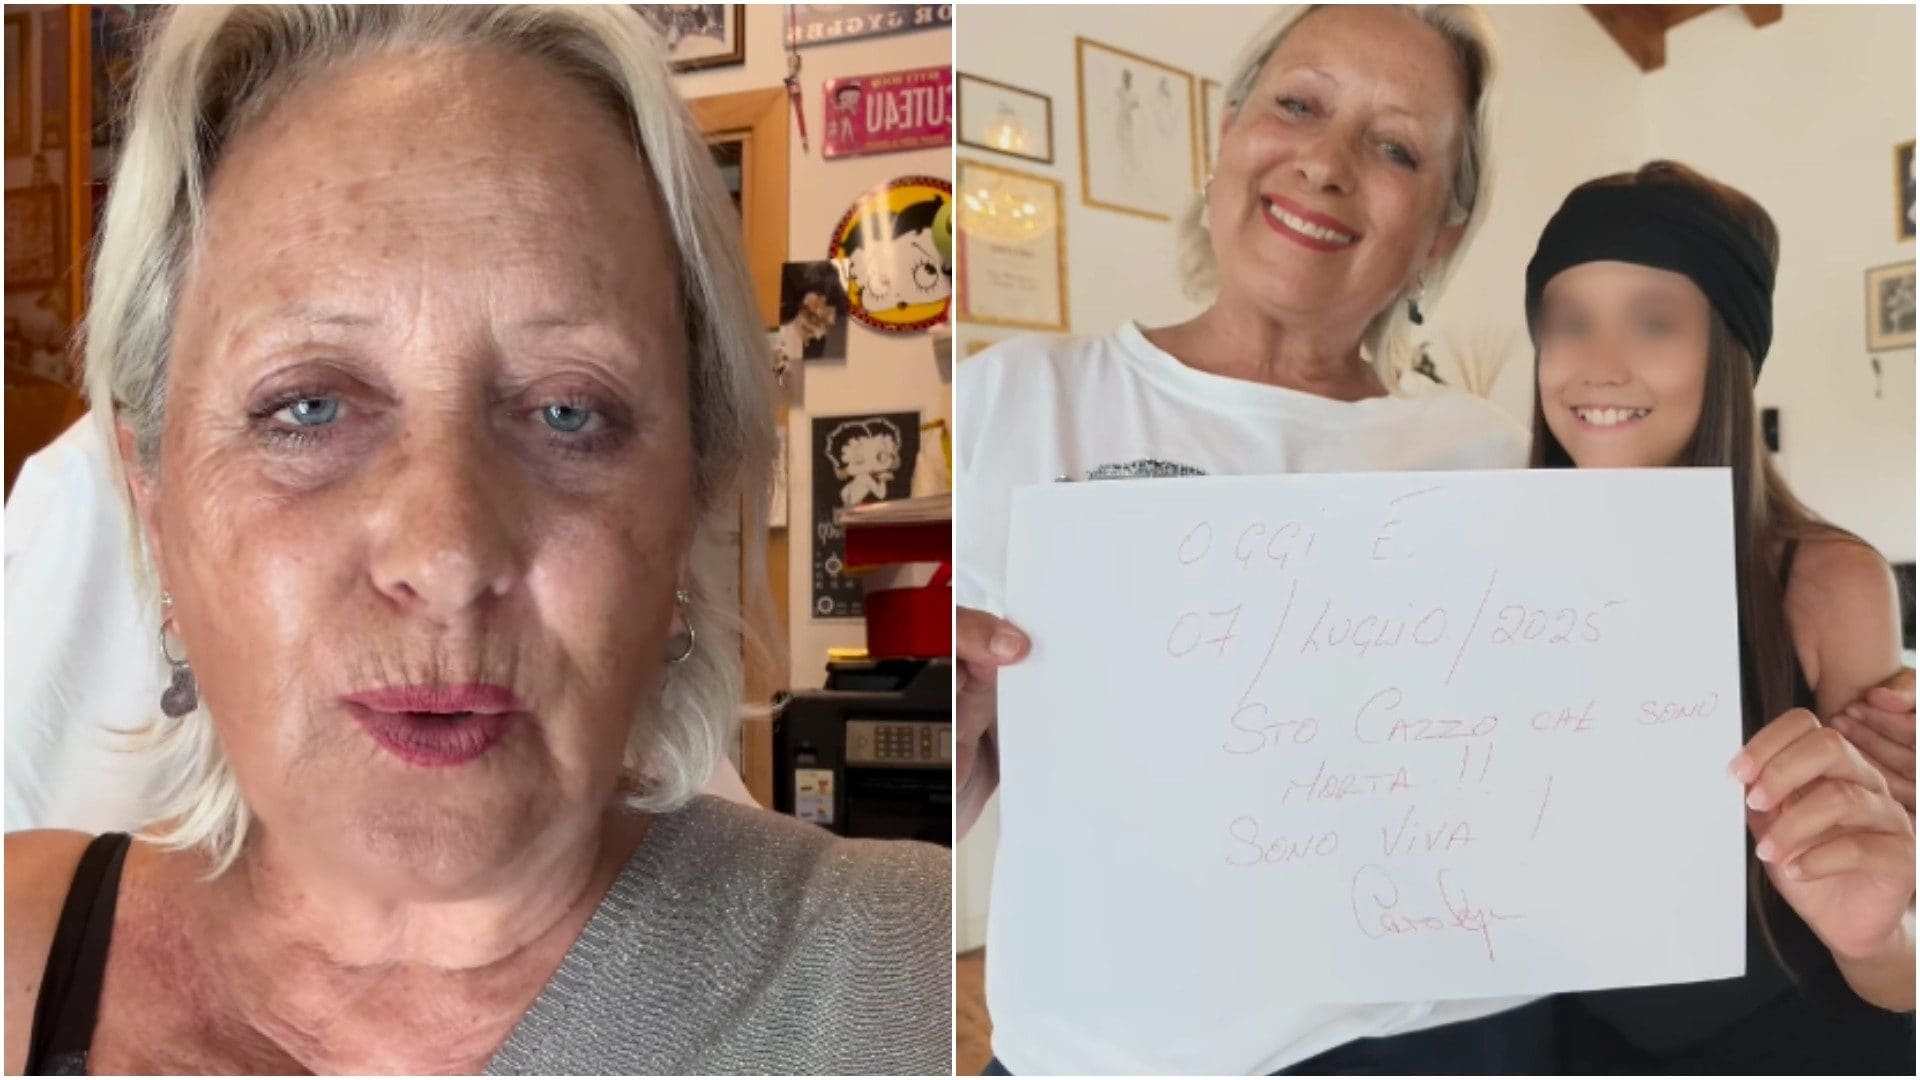 CUTE4U
OGGI É.
07/LUGLIO/2025
STO CAZZO CHE SONO
MORTA!!
SONO VIVA!
Carolyn